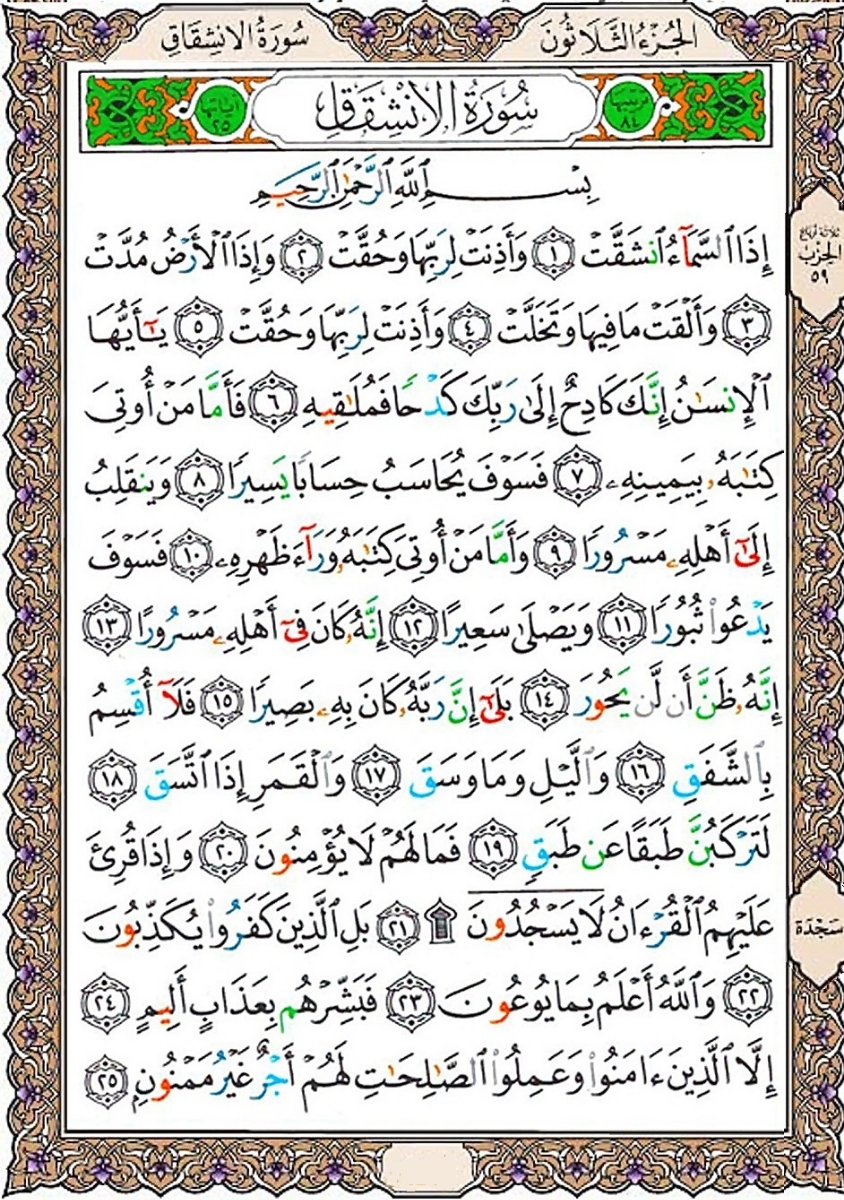 الجُزْءُ الثَّلَاثُونَ
سُورَةُ الانشِقَاقِ
ترتيبها ٨٤
سُورَةُ الانْشِقَاقِ
آياتها ٢٥
بِسْمِ ٱللَّهِ ٱلرَّحْمَٰنِ ٱلرَّحِيمِ
إِذَا ٱلسَّمَآءُ ٱنشَقَّتْ ١ وَأَذِنَتْ لِرَبِّهَا وَحُقَّتْ ٢ وَإِذَا ٱلْأَرْضُ مُدَّتْ
٣ وَأَلْقَتْ مَا فِيهَا وَتَخَلَّتْ ٤ وَأَذِنَتْ لِرَبِّهَا وَحُقَّتْ ٥ يَٰٓأَيُّهَا
ٱلْإِنسَٰنُ إِنَّكَ كَادِحٌ إِلَىٰ رَبِّكَ كَدْحًا فَمُلَٰقِيهِ ٦ فَأَمَّا مَنْ أُوتِىَ
كِتَٰبَهُۥ بِيَمِينِهِۦ ٧ فَسَوْفَ يُحَاسَبُ حِسَابًا يَسِيرًا ٨ وَيَنقَلِبُ
إِلَىٰٓ أَهْلِهِۦ مَسْرُورًا ٩ وَأَمَّا مَنْ أُوتِىَ كِتَٰبَهُۥ وَرَآءَ ظَهْرِهِۦ ١٠ فَسَوْفَ
يَدْعُوا۟ ثُبُورًا ١١ وَيَصْلَىٰ سَعِيرًا ١٢ إِنَّهُۥ كَانَ فِىٓ أَهْلِهِۦ مَسْرُورًا ١٣
إِنَّهُۥ ظَنَّ أَن لَّن يَحُورَ ١٤ بَلَىٰٓ إِنَّ رَبَّهُۥ كَانَ بِهِۦ بَصِيرًا ١٥ فَلَآ أُقْسِمُ
بِٱلشَّفَقِ ١٦ وَٱلَّيْلِ وَمَا وَسَقَ ١٧ وَٱلْقَمَرِ إِذَا ٱتَّسَقَ ١٨
لَتَرْكَبُنَّ طَبَقًا عَن طَبَقٍ ١٩ فَمَا لَهُمْ لَا يُؤْمِنُونَ ٢٠ وَإِذَا قُرِئَ
عَلَيْهِمُ ٱلْقُرْءَانُ لَا يَسْجُدُونَ ۩ ٢١ بَلِ ٱلَّذِينَ كَفَرُوا۟ يُكَذِّبُونَ
٢٢ وَٱللَّهُ أَعْلَمُ بِمَا يُوعُونَ ٢٣ فَبَشِّرْهُم بِعَذَابٍ أَلِيمٍ ٢٤
إِلَّا ٱلَّذِينَ ءَامَنُوا۟ وَعَمِلُوا۟ ٱلصَّٰلِحَٰتِ لَهُمْ أَجْرٌ غَيْرُ مَمْنُونٍۭ ٢٥
ثلاثة أرباع
الحِزْب
٥٩
سَجْدَة